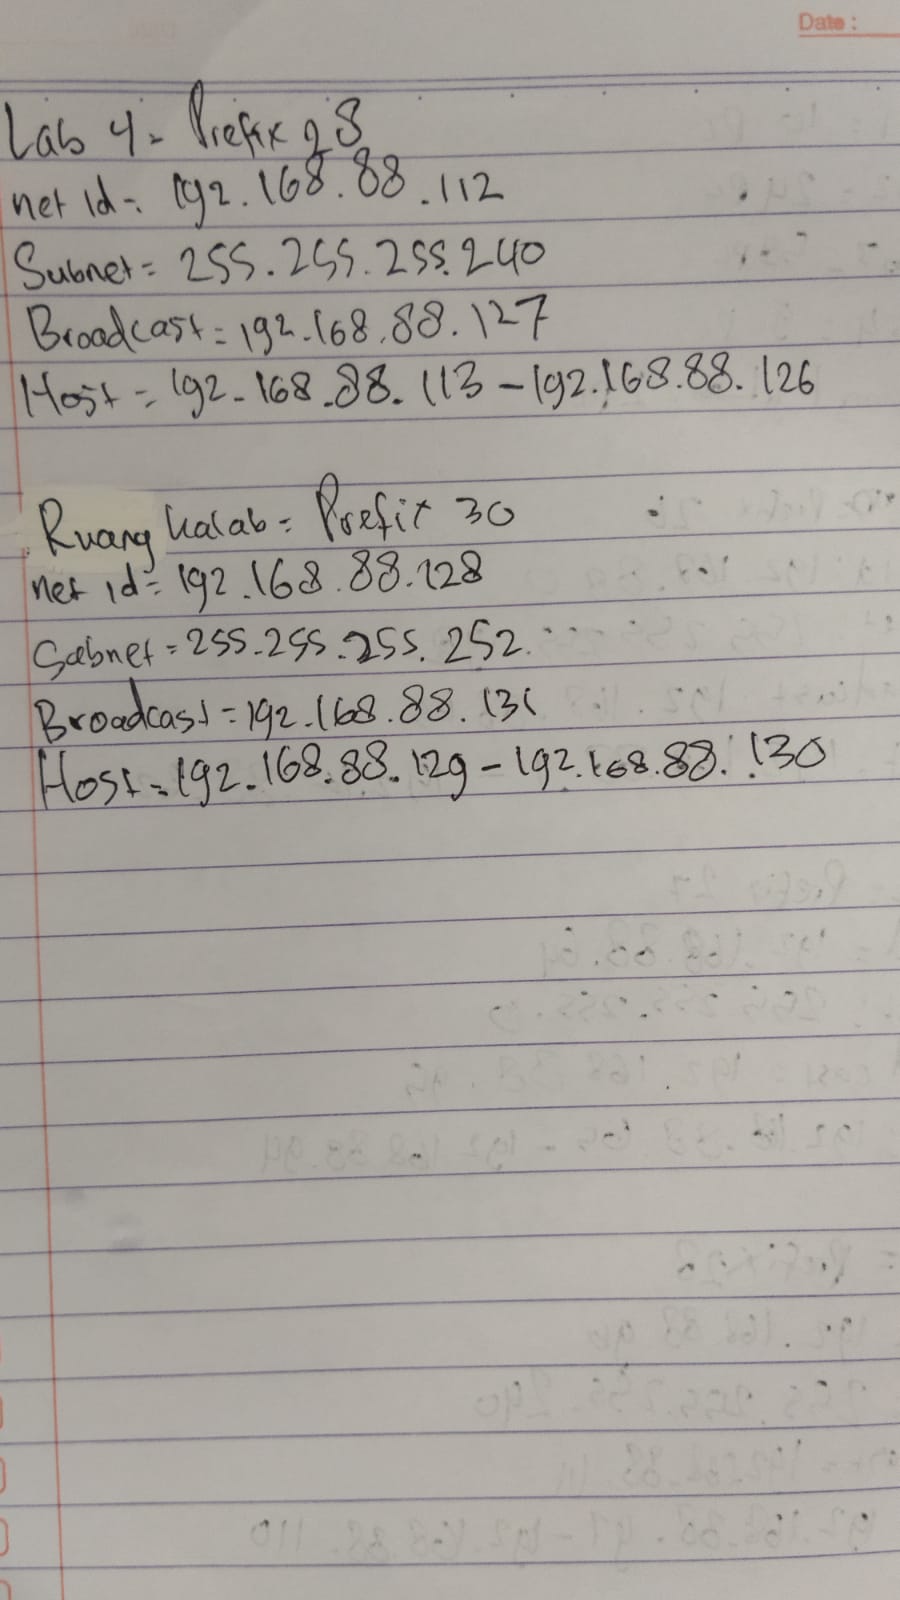 Date :
Lab 4 = Prefix 28
net id = 192.168.88.112
Subnet = 255.255.255.240
Broadcast = 192.168.88.127
Host = 192.168.88.113 - 192.168.88.126
Ruang kalab = Prefix 30
net id = 192.168.88.128
Subnet = 255.255.255.252
Broadcast = 192.168.88.131
Host = 192.168.88.129 - 192.168.88.130